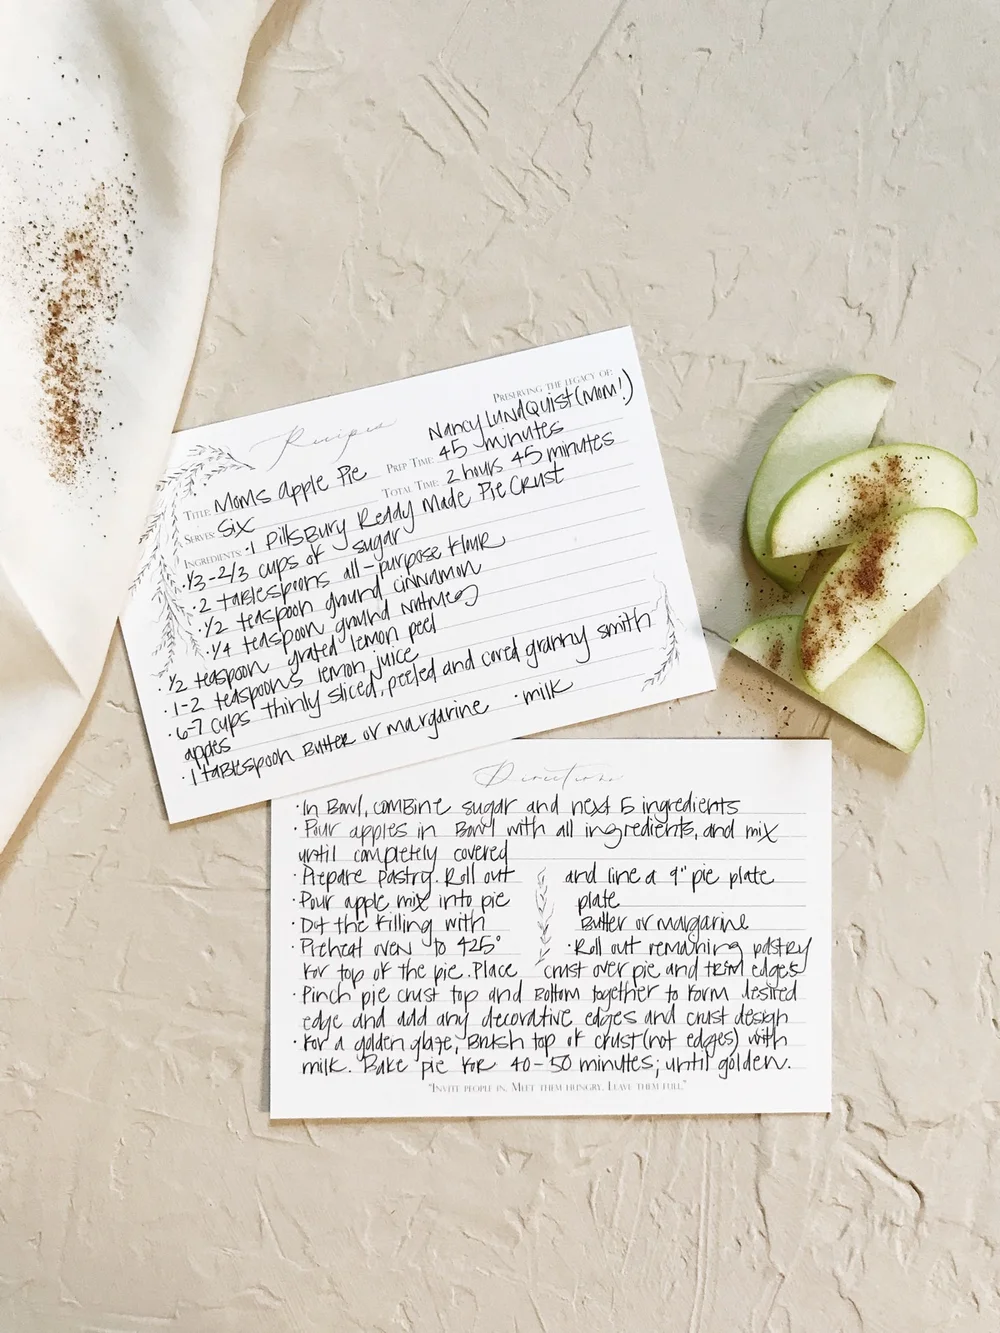 Recipes
PRESERVING THE LEGACY OF:
Nancy Lundquist (Mom!)
TITLE: Moms Apple Pie
PREP TIME: 45 minutes
SERVES: Six
TOTAL TIME: 2 hours 45 minutes
INGREDIENTS: · 1 Pillsbury Reddy Made Pie Crust
· 1/3-2/3 cups of sugar
· 2 tablespoons all-purpose flour
· 1/2 teaspoon ground cinnamon
· 1/4 teaspoon ground nutmeg
· 1/2 teaspoon grated lemon peel
· 1-2 teaspoons lemon juice
· 6-7 cups thinly sliced, peeled and cored granny smith
apples
· 1 tablespoon butter or margarine · milk
Directions
· In Bowl, combine sugar and next 5 ingredients
· Pour apples in Bowl with all ingredients, and mix
until completely covered
· Prepare pastry. Roll out and line a 9" pie plate
· Pour apple mix into pie plate
· Dot the filling with Butter or margarine
· Preheat oven to 425° · Roll out remaining pastry
for top of the pie. Place crust over pie and trim edges
· Pinch pie crust top and Bottom together to form desired
edge and add any decorative edges and crust design
· For a golden glaze, Brush top of crust (not edges) with
milk. Bake pie for 40-50 minutes; until golden.
"INVITE PEOPLE IN. MEET THEM HUNGRY. LEAVE THEM FULL."